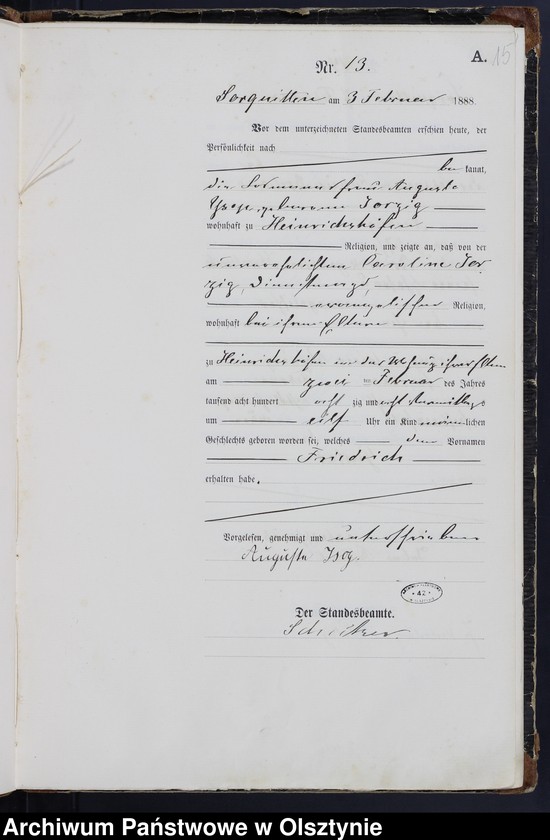 A. 15
Nr. 13.
Sorquitten am 3 Februar 1888
Vor dem unterzeichneten Standesbeamten erschien heute, der
Persönlichkeit nach
be kannt,
die frau Auguste
geborene Jorzig
wohnhaft zu Heinrichshöfen
Religion, und zeigte an, daß von der
unverehelichten Caroline Jor
zig, Dienstmagd,
evangelischer Religion,
wohnhaft bei ihren Eltern
zu Heinrichshöfen in der Wohnung ihrer Eltern
am zwei ten Februar des Jahres
tausend acht hundert acht zig und acht Vormittags
um elf Uhr ein Kind männlichen
Geschlechts geboren worden sei, welches den Vornamen
Friedrich
erhalten habe.
Vorgelesen, genehmigt und unterschrieben
Auguste
Der Standesbeamte.
Archiwum Państwowe w Olsztynie